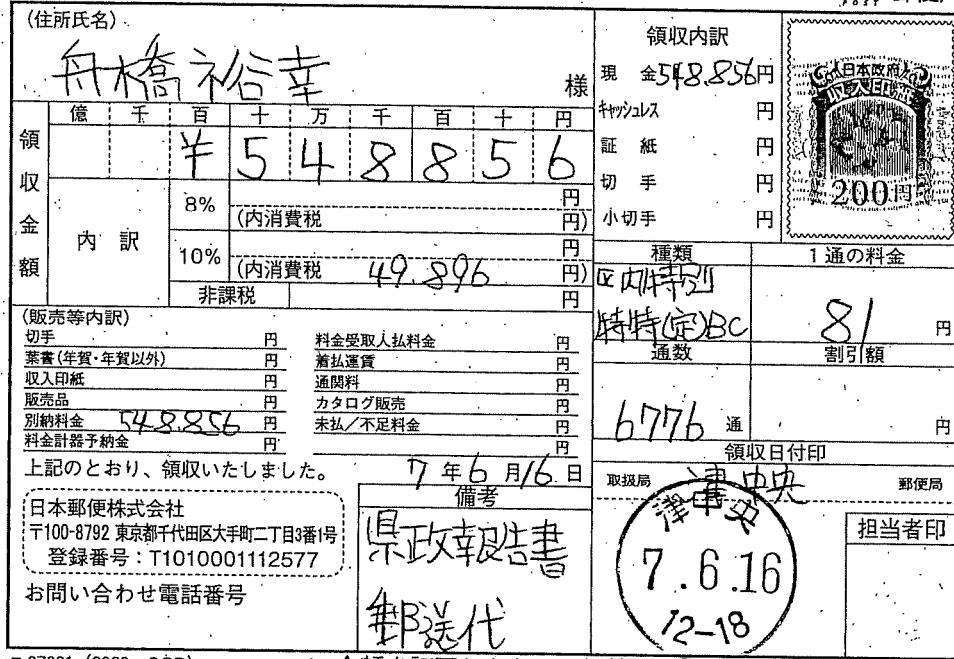 (住所氏名)
舟橋裕幸 様
領収金額
億 千 百 十 万 千 百 十 円
¥548856
内訳
8% 円
(内消費税 円)
10% 円
(内消費税 49.896 円)
非課税 円
(販売等内訳)
切手 円
葉書(年賀・年賀以外) 円
収入印紙 円
販売品 円
別納料金 548.856 円
料金計器予納金 円
料金受取人払料金 円
着払運賃 円
通関料 円
カタログ販売 円
未払/不足料金 円
円
上記のとおり、領収いたしました。
7年6月16日
日本郵便株式会社
〒100-8792 東京都千代田区大手町二丁目3番1号
登録番号:T1010001112577
お問い合わせ電話番号
備考
県政報告書
郵送代
領収内訳
現金 548.856円
キャッシュレス 円
証紙 円
切手 円
小切手 円
日本政府
収入印紙
200円
種類
区内特別
特特(定)BC
1通の料金
81 円
通数
6776 通
割引額
円
領収日付印
取扱局 津中央 郵便局
津中央
7.6.16
12-18
担当者印